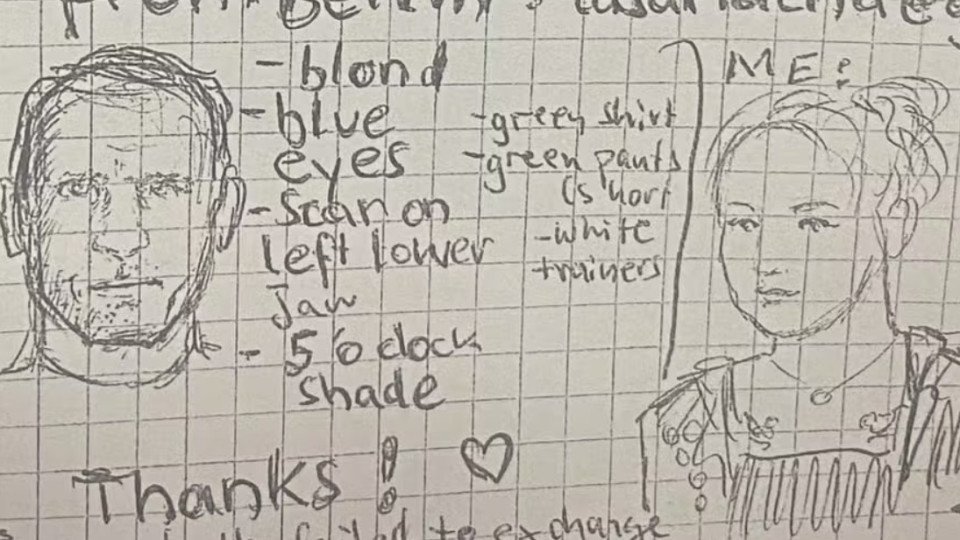 from Berlin!
- blond
- blue
eyes
- Scar on
left lower
Jaw
- 5 o clock
shade
-green shirt
-green pants
(short
-white
trainers
ME:
Thanks! ♡
to exchange